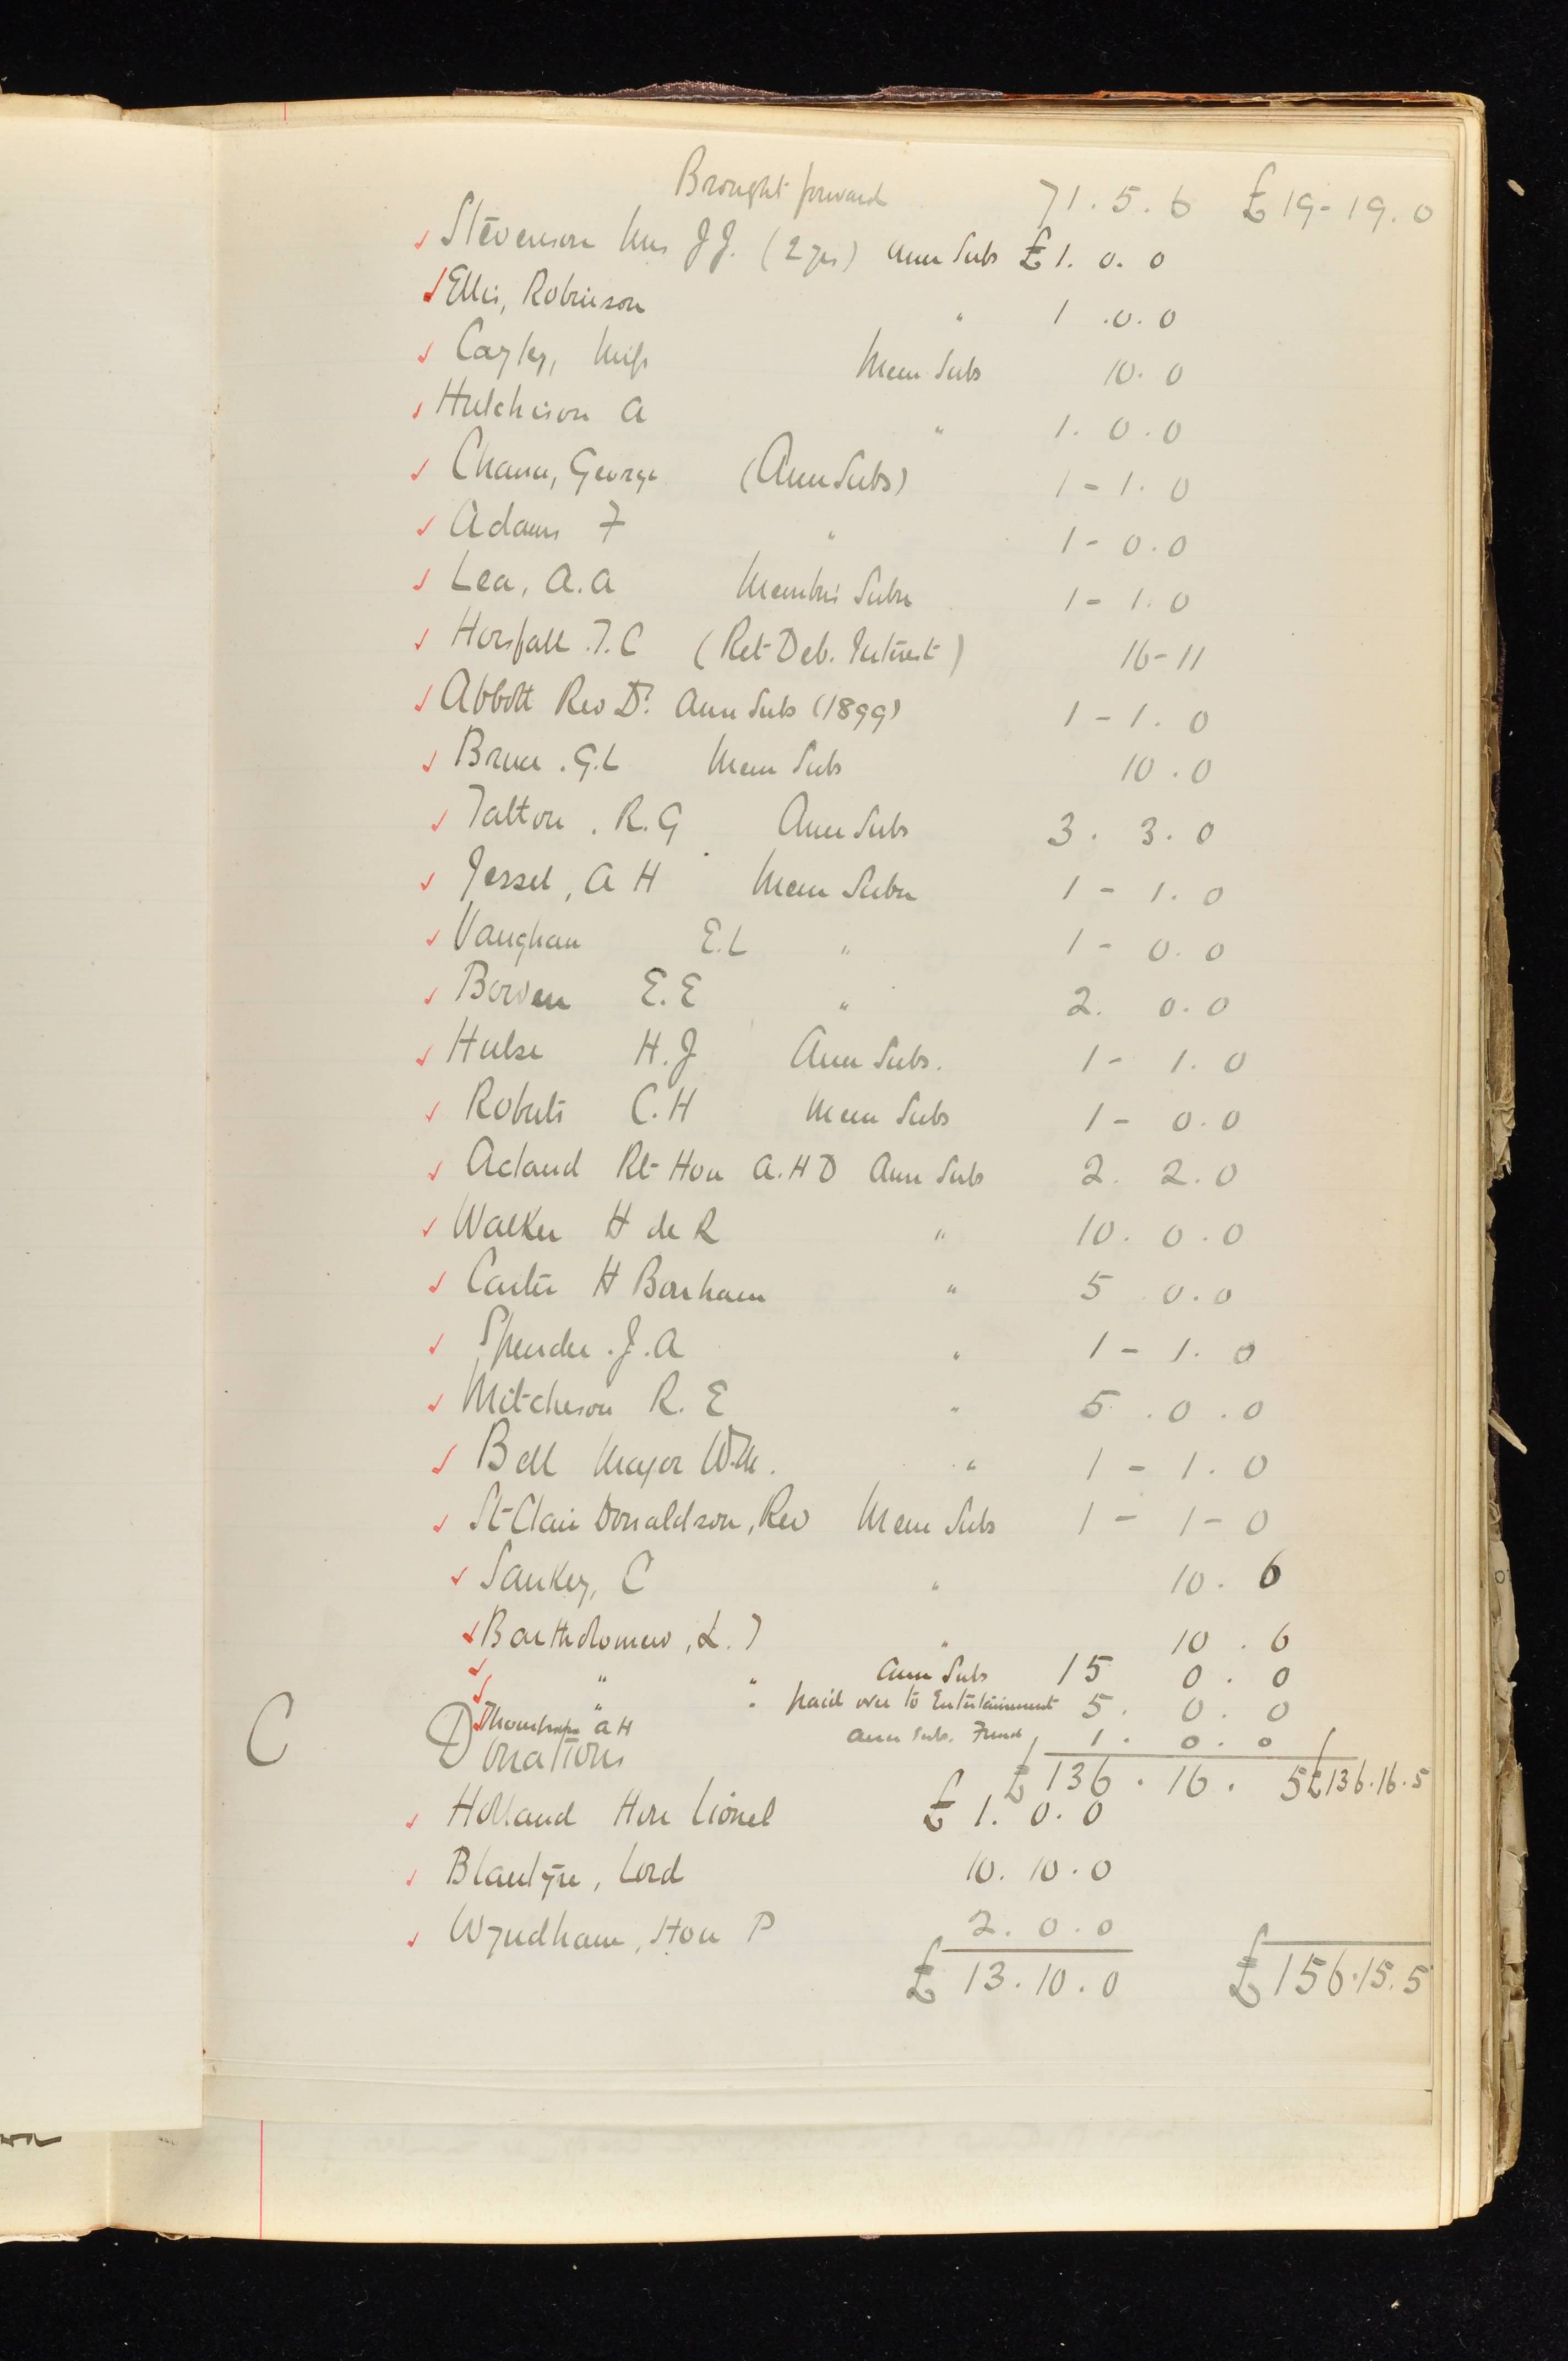 Brought forward 71. 5. 6 £19-19. 0
Stevenson Mrs J.J. (2 yrs) Ann Subs £1. 0. 0
Ellis, Robinson " 1 .0. 0
Cayley, Miss Mem Subs 10. 0
Hutchison A " 1. 0. 0
George (Ann Subs) 1 - 1. 0
Adams F " 1 - 0. 0
Lea, A.A Members Subn 1 - 1. 0
Horsfall .T.C (Ret Deb. Interest) 16 - 11
Abbott Rev Dr. Ann Subs (1899) 1 - 1. 0
Bruce .G.L Mem Subs 10 . 0
Tatton . R.G Ann Subs 3. 3. 0
Jessel, A H Mem Subn 1 - 1. 0
Vaughan E.L " 1 - 0. 0
Bowen E.E " 2. 0. 0
Hulse H.J Ann Subs. 1 - 1. 0
Roberts C.H Mem Subs 1 - 0. 0
Acland Rt Hon A.H D Ann Sub 2. 2. 0
Walker H de R " 10. 0. 0
Carter H Bonham " 5 0. 0
Spender .J.A " 1 - 1. 0
Mitcheson R. E " 5 . 0 . 0
Bell Major W.M. " 1 - 1. 0
St Clair Donaldson, Rev Mem Subs 1 - 1 - 0
Sankey, C " 10. 6
Bartholomew, L. T " 10 . 6
" " Ann Subs 15 0 . 0
" " paid over to Entertainment 5. 0. 0
Thompson A H Ann Subs. Fund 1. 0. 0
C Donations £136. 16. 5 £136.16.5
Holland Hon Lionel £1. 0. 0
Blantyre, Lord 10. 10. 0
Wyndham, Hon P 2. 0. 0
£13. 10. 0 £156.15.5